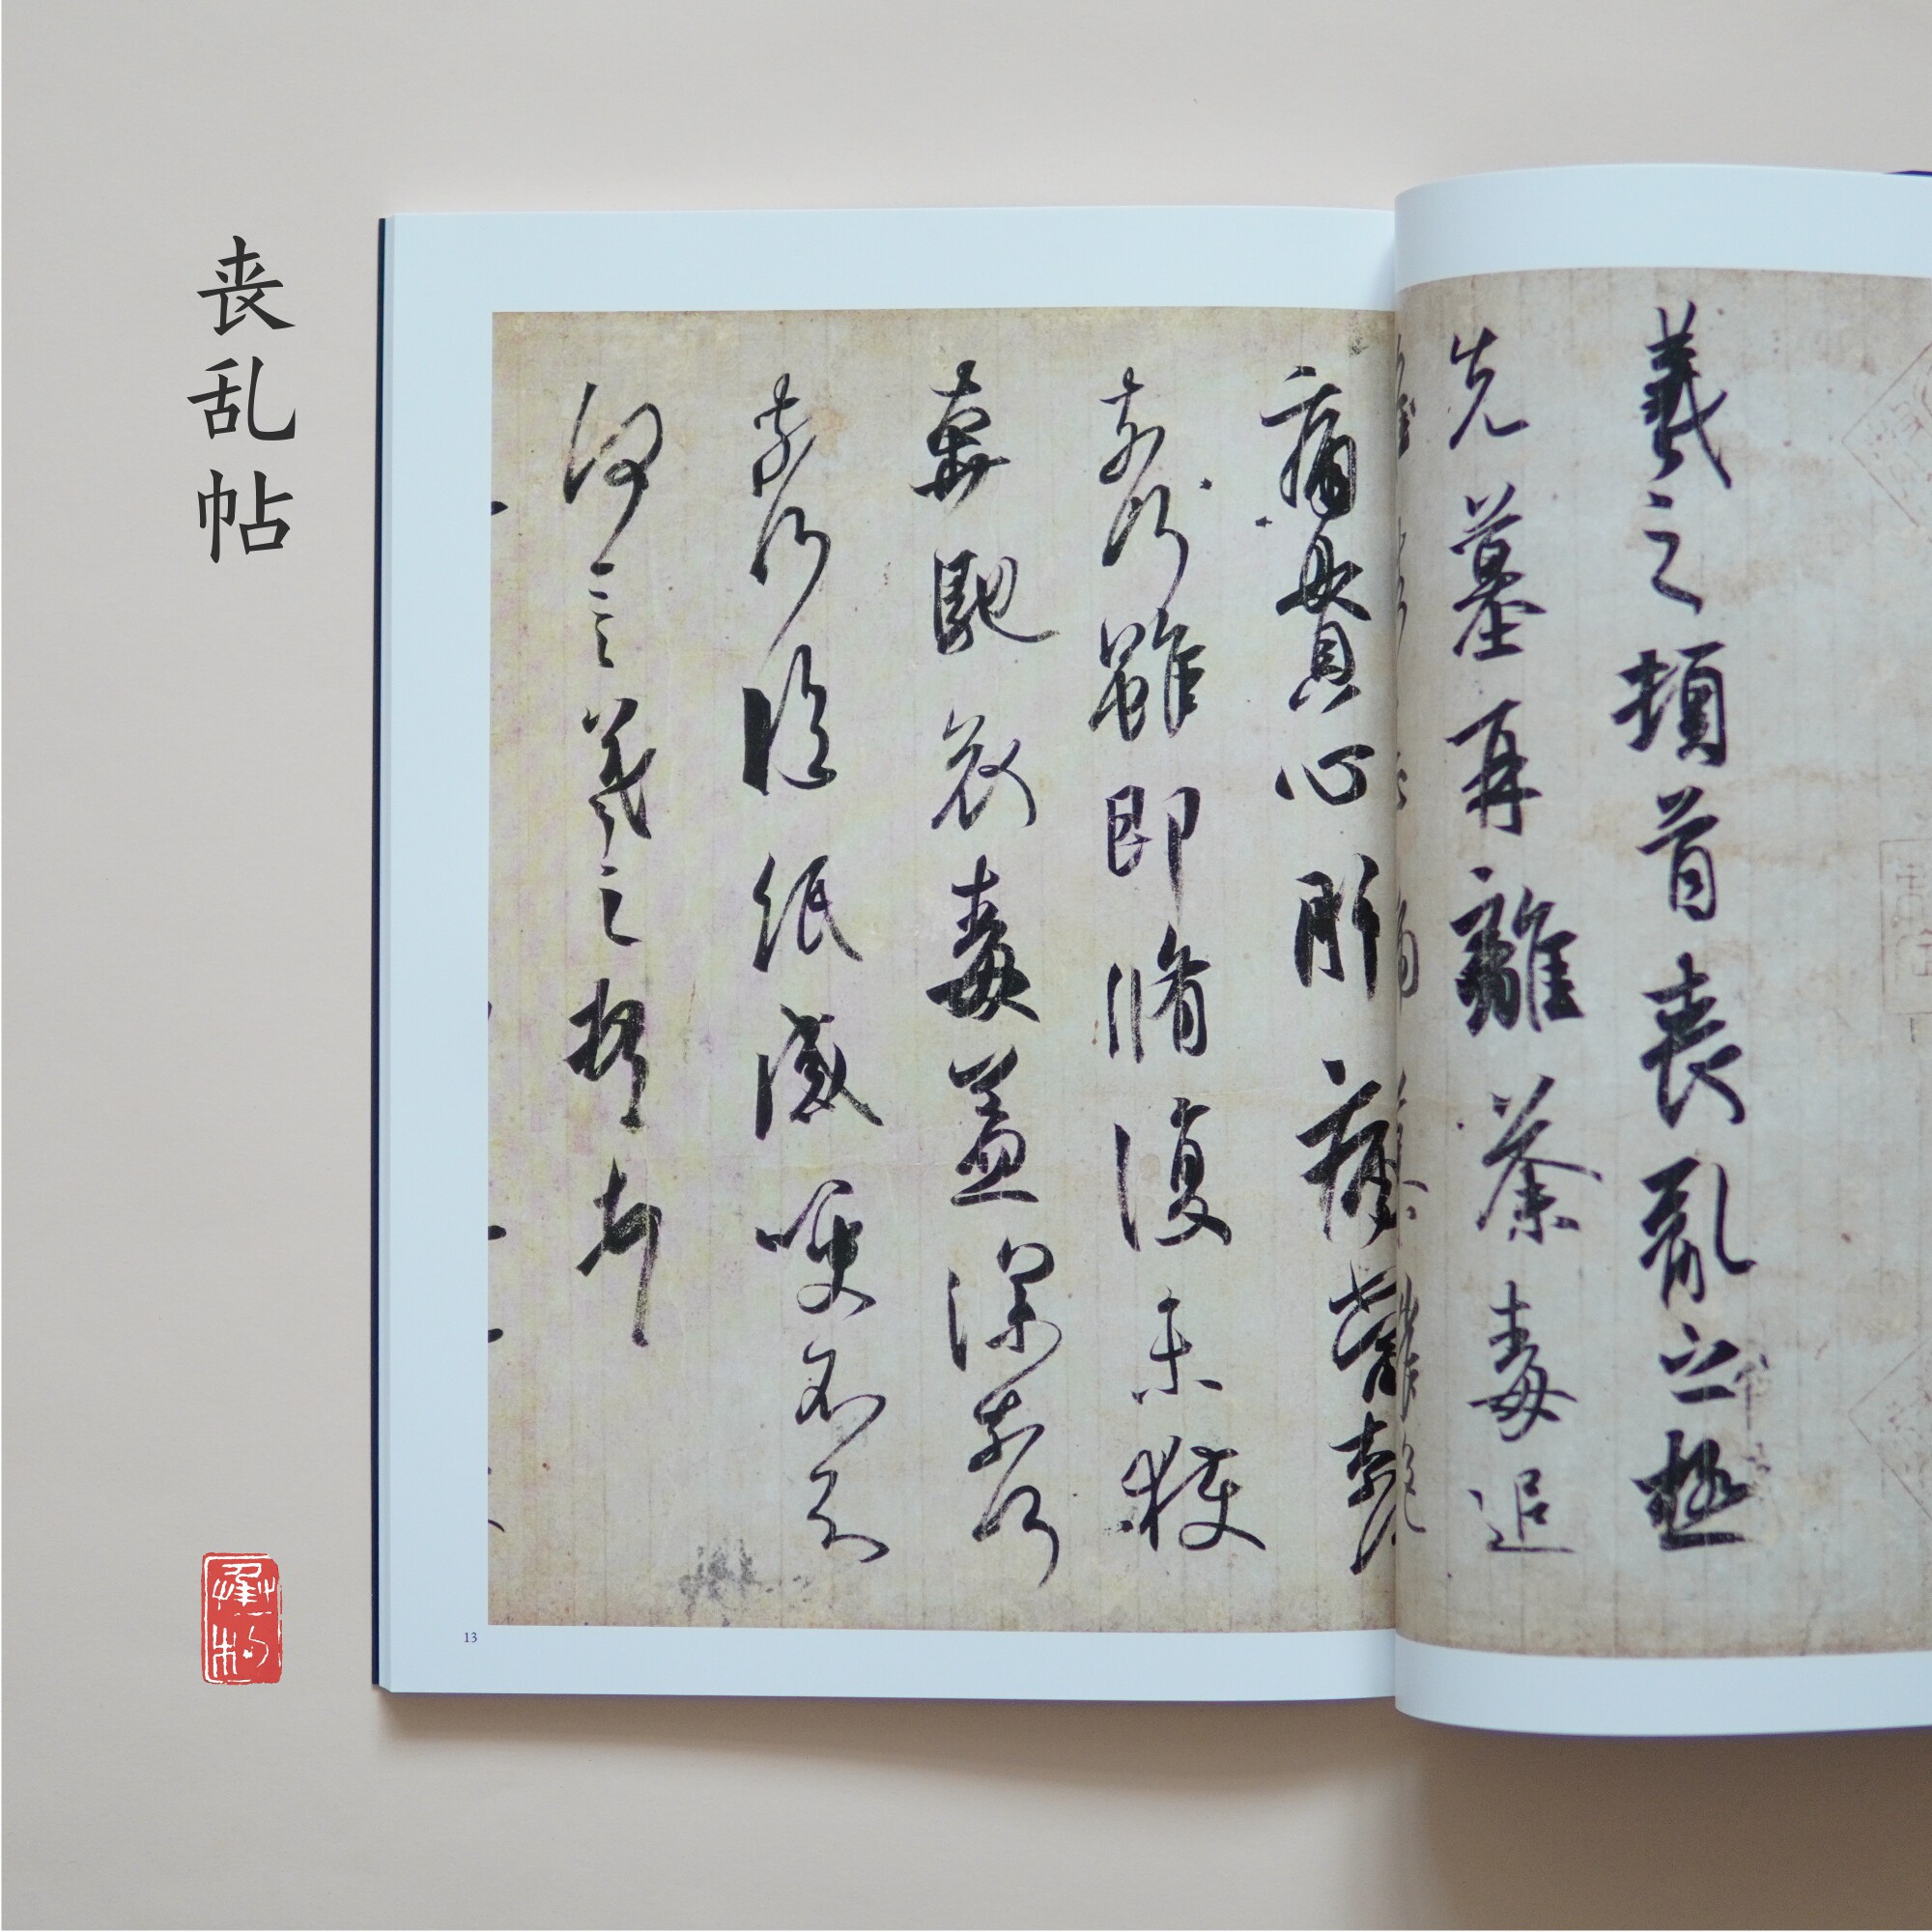 丧乱帖
羲之頓首喪亂之極
先墓再離荼毒追
痛貫心肝痛當奈
奈何雖即脩復未獲
奔馳哀毒益深奈何
奈何臨紙感哽不知
何言羲之頓首
13